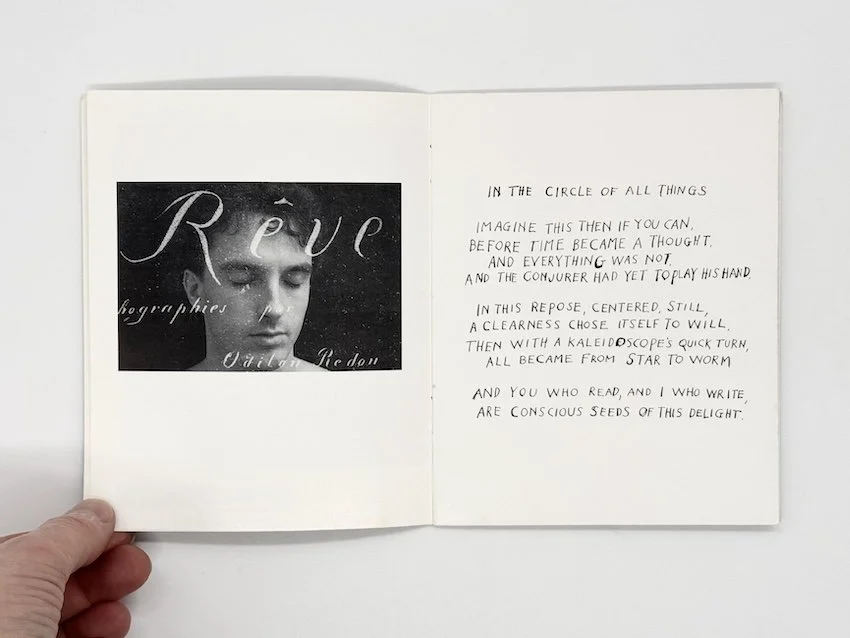 Rêve
hographies par
Odilon Redon
IN THE CIRCLE OF ALL THINGS
IMAGINE THIS THEN IF YOU CAN,
BEFORE TIME BECAME A THOUGHT.
AND EVERYTHING WAS NOT,
AND THE CONJURER HAD YET TO PLAY HIS HAND.
IN THIS REPOSE, CENTERED, STILL,
A CLEARNESS CHOSE ITSELF TO WILL.
THEN WITH A KALEIDOSCOPE'S QUICK TURN,
ALL BECAME FROM STAR TO WORM
AND YOU WHO READ, AND I WHO WRITE,
ARE CONSCIOUS SEEDS OF THIS DELIGHT.